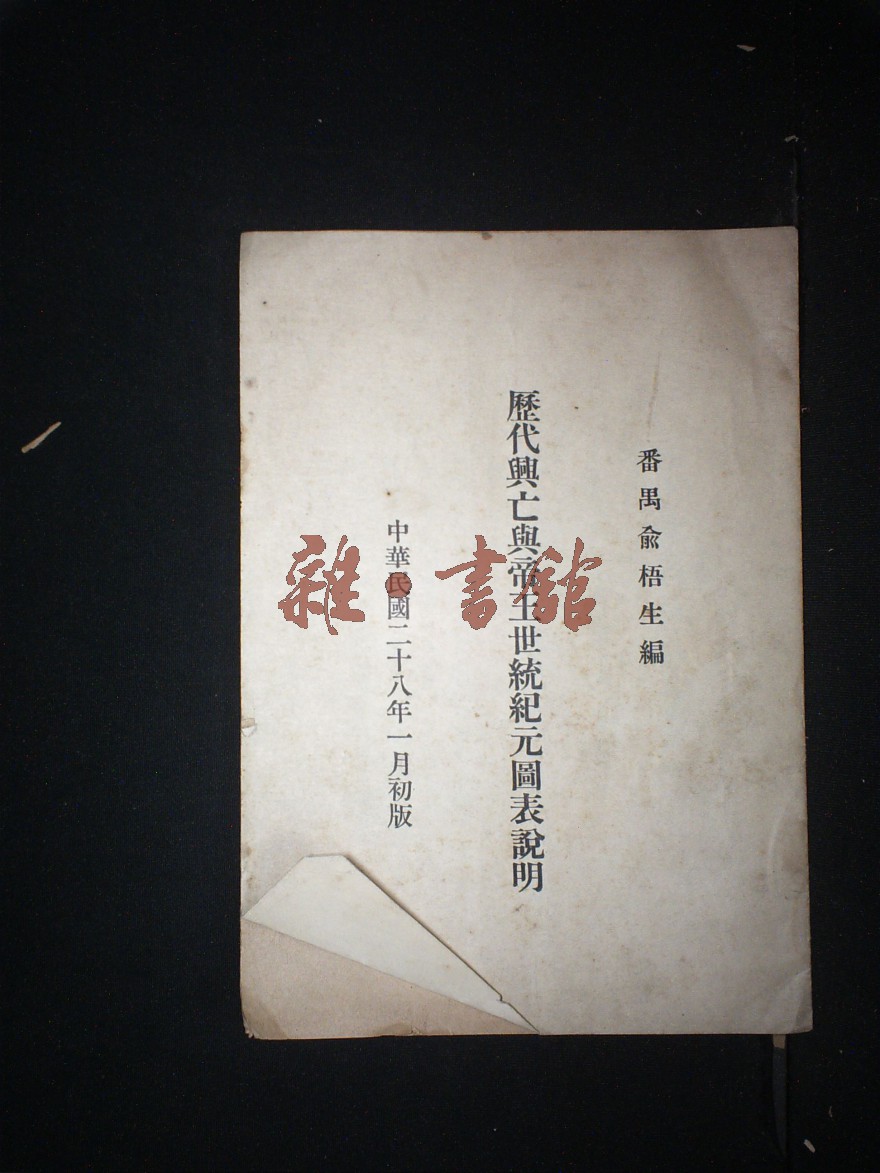 番禺俞梧生編
歷代興亡與帝王世統紀元圖表說明
中華民國二十八年一月初版
雜・書館